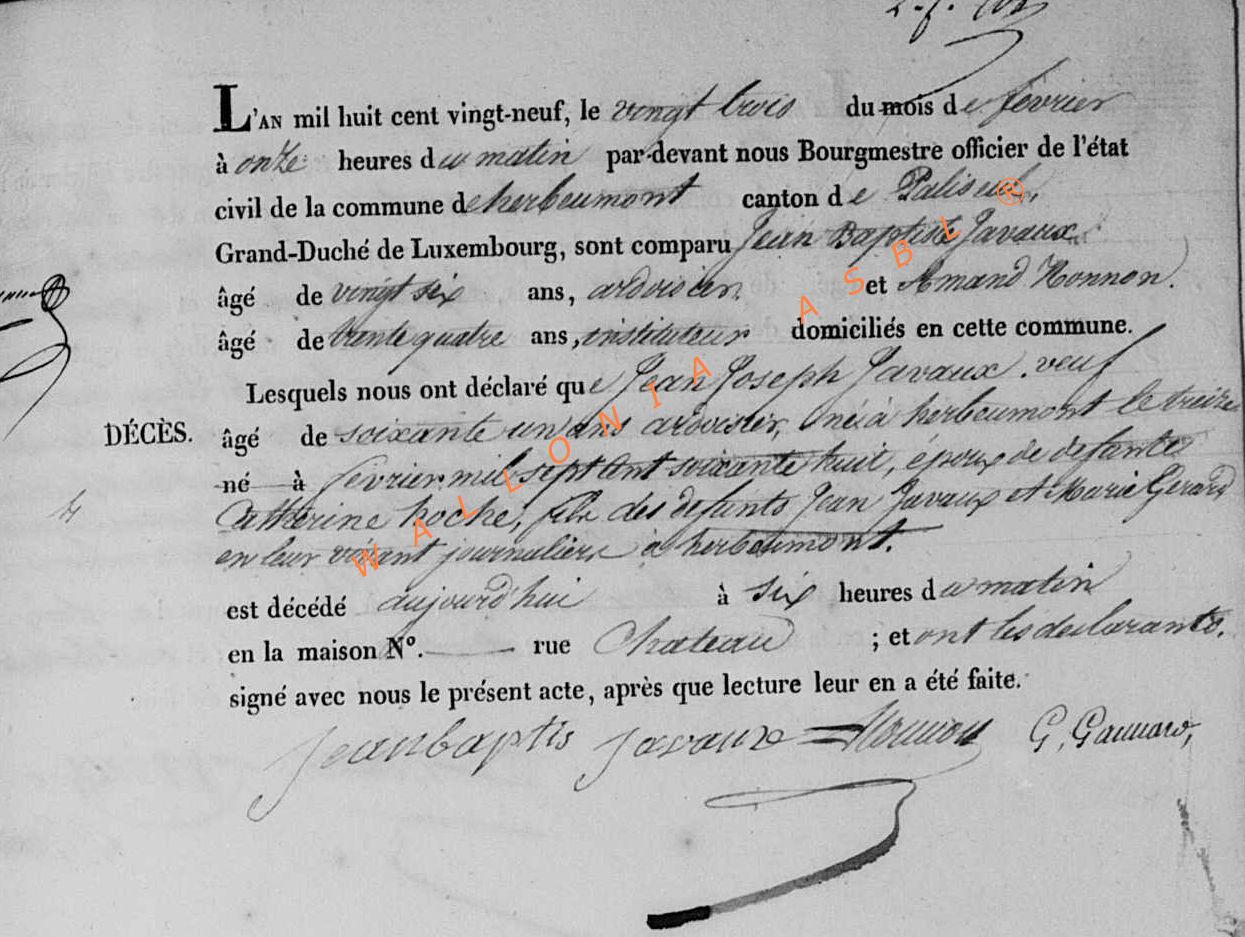 L'AN mil huit cent vingt-neuf, le vingt trois du mois de fevrier
à onze heures du matin par-devant nous Bourgmestre officier de l'état
civil de la commune de herbeumont canton de Paliseul,
Grand-Duché de Luxembourg, sont comparu Jean Baptiste Javaux
âgé de vingt six ans, ardoisier, et Amand Honnon.
âgé de trente quatre ans, instituteur domiciliés en cette commune.
Lesquels nous ont déclaré que Jean Joseph Javaux. veuf
DÉCÈS. âgé de soixante un ans ardoisier, né à herbeumont le treize
né à fevrier mil sept cent soixante huit, époux de defunte
Catherine hoche, fils des defunts Jean Javaux et Marie Gerard
en leur vivant journaliers à herbeumont.
est décédé aujourd'hui à six heures du matin
en la maison N°. rue Chateau ; et ont les declarants.
signé avec nous le présent acte, après que lecture leur en a été faite.
Jeanbaptis Javaux Honnon
WALLONIA ASBL ®